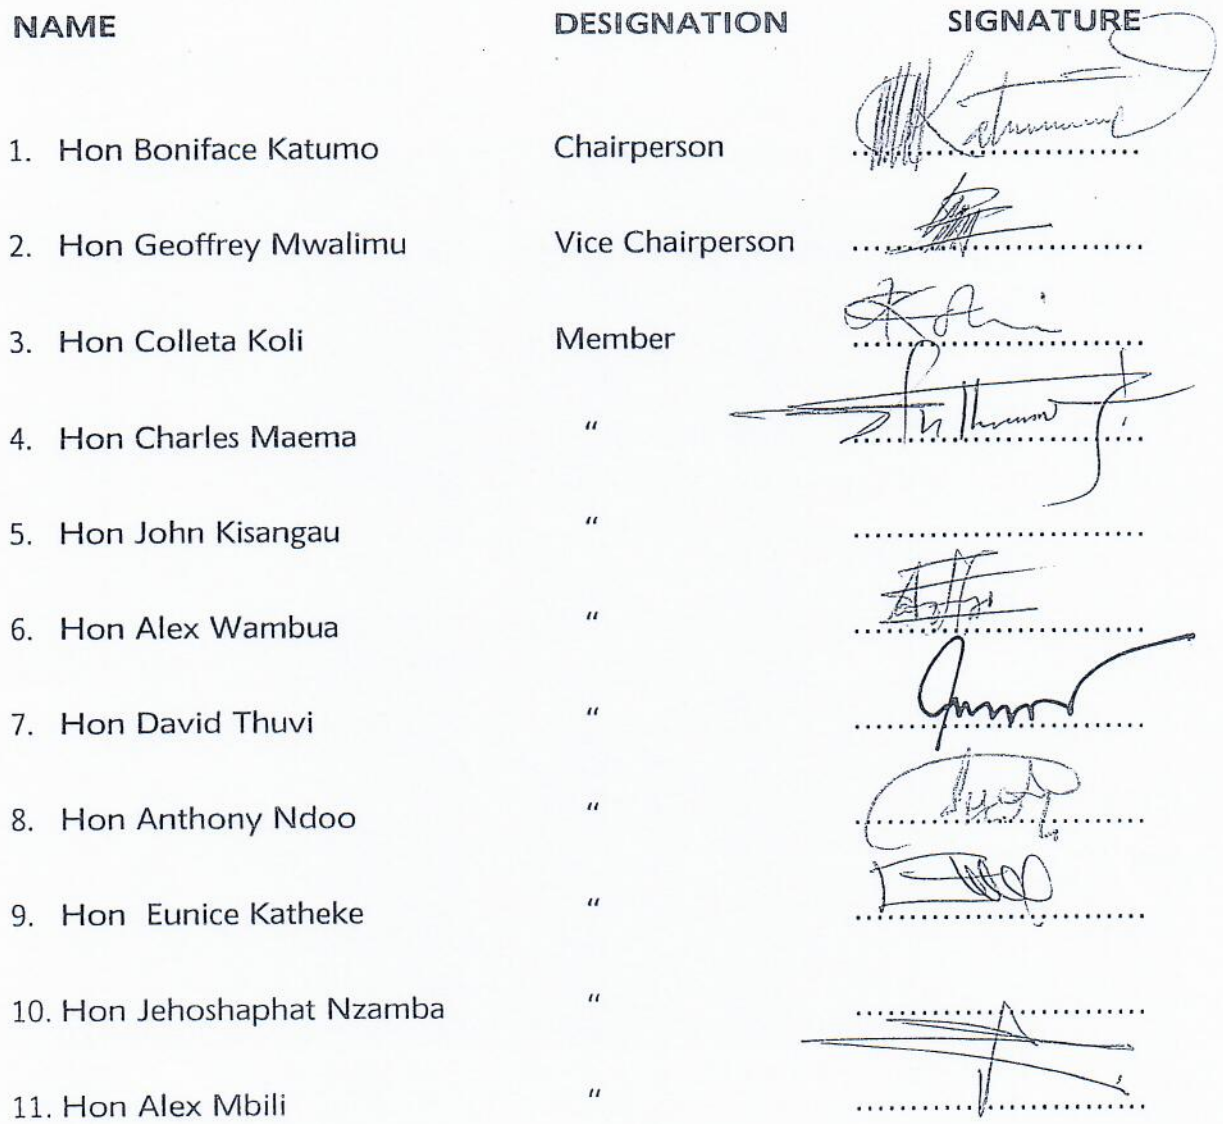 NAME DESIGNATION SIGNATURE
1. Hon Boniface Katumo Chairperson
2. Hon Geoffrey Mwalimu Vice Chairperson
3. Hon Colleta Koli Member
4. Hon Charles Maema "
5. Hon John Kisangau "
6. Hon Alex Wambua "
7. Hon David Thuvi "
8. Hon Anthony Ndoo "
9. Hon Eunice Katheke "
10. Hon Jehoshaphat Nzamba "
11. Hon Alex Mbili "